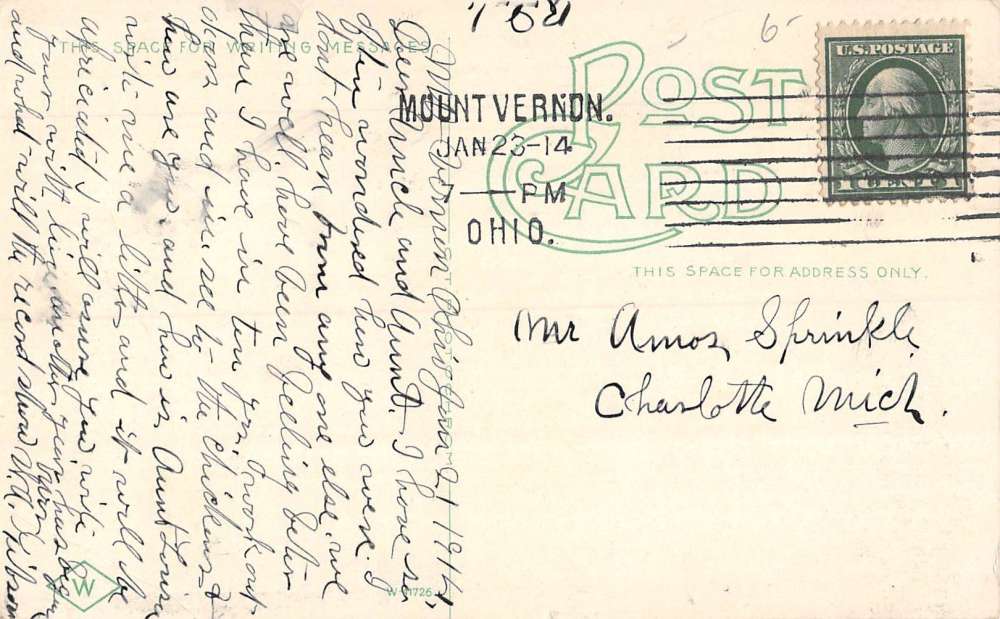 THIS SPACE FOR WRITING MESSAGES
POST
CARD
THIS SPACE FOR ADDRESS ONLY.
U.S. POSTAGE
1 CENT 1
MOUNT VERNON.
JAN 23-14
7 PM
OHIO.
6
Mr Amos Sprinkle
Charlotte Mich.
Mt Vernon Ohio Jan 21 1914,
Dear Uncle and Aunt. I have so
often wondered how you were. I
dont hear from any one else. we
are well, have been feeling better
than I have in ten yrs. I work out
doors and see to the chickens &
how are you. and how is Aunt Louisa
write me a letter and it will be
apriciated I will assure you
Yours with
and what will the record show W.A.
W
W-11726